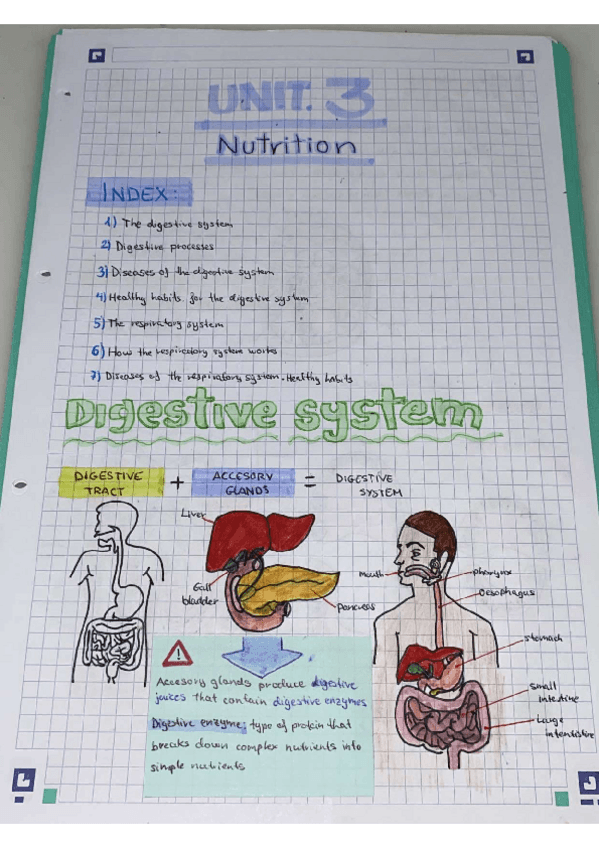 UNIT. 3
Nutrition
INDEX:
1) The digestive system
2) Digestive processes
3) Diseases of the digestive system
4) Healthy habits for the digestive system
5) The respiratory system
6) How the respiratory system works
7) Diseases of the respiratory system. Healthy habits
Digestive system
DIGESTIVE TRACT + ACCESORY GLANDS = DIGESTIVE SYSTEM
Liver
Gall bladder
Pancreas
Mouth
pharynx
Oesophagus
stomach
Small intestine
Large intendistine
Accesory glands produce digestive
jouices that contain digestive enzymes
Digestive enzyme: type of protein that
breaks down complex nutrients into
simple nutrients